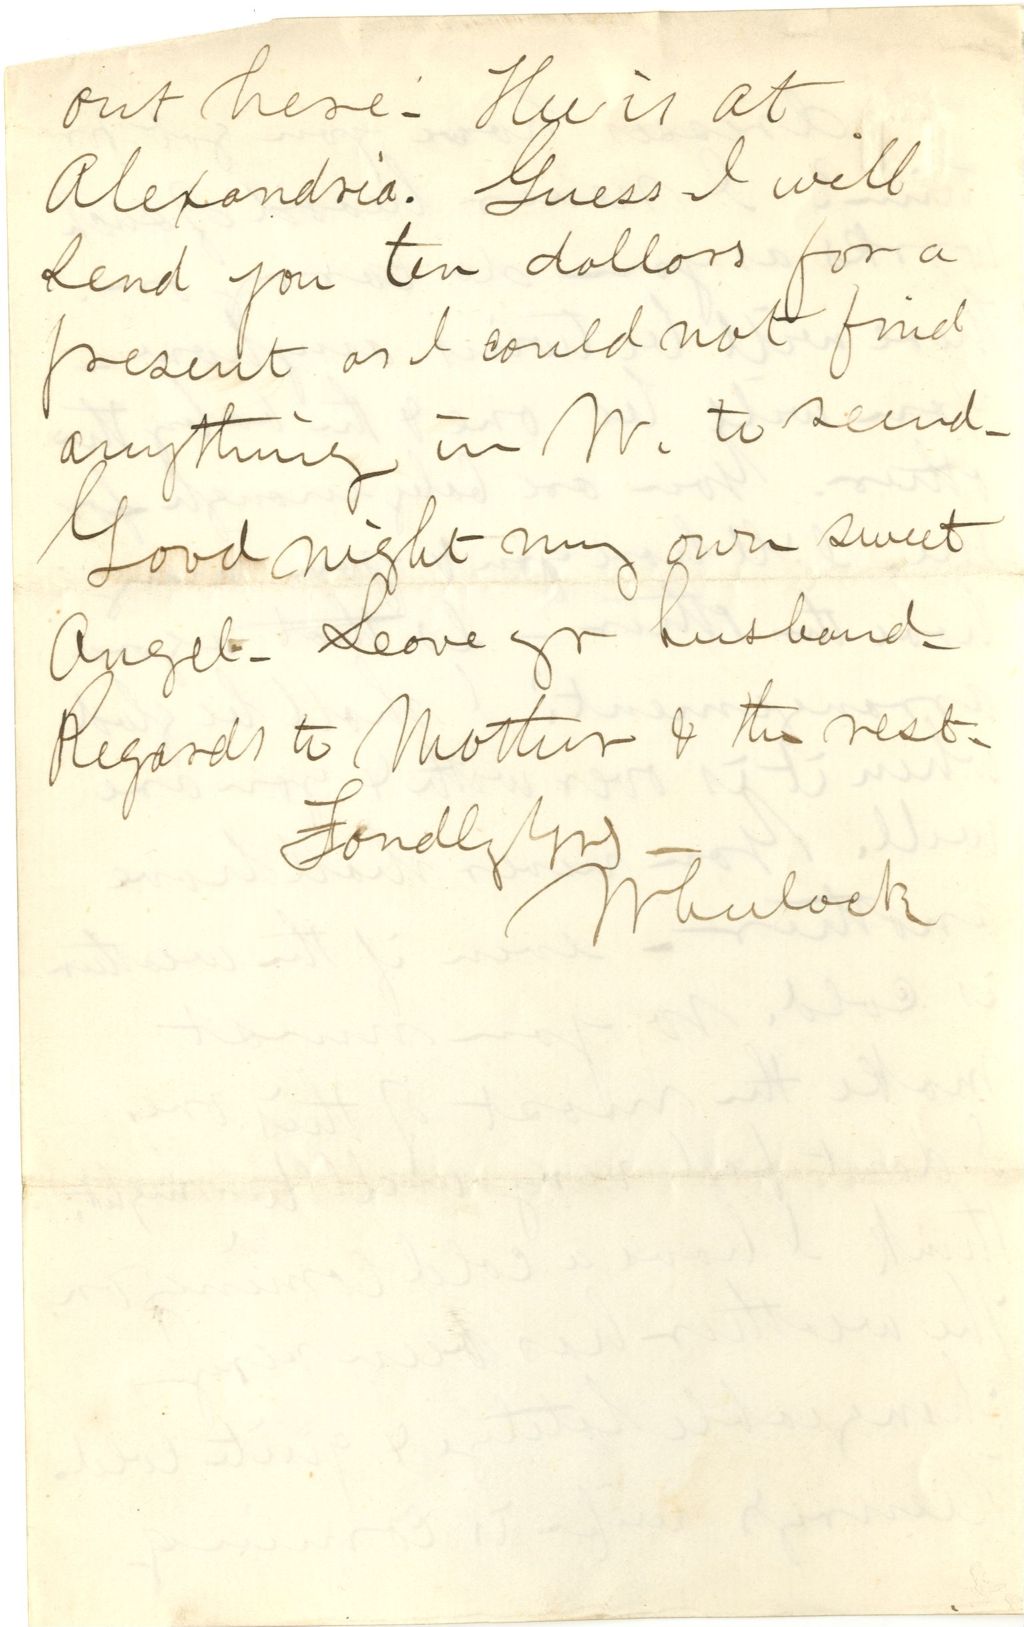 out here - He is at
Alexandria. Guess I will
send you ten dollars for a
present as I could not find
anything in W. to send -
Good night my own sweet
Angel - Love yr husband -
Regards to Mother & the rest -
Fondly Yrs -
Wheelock